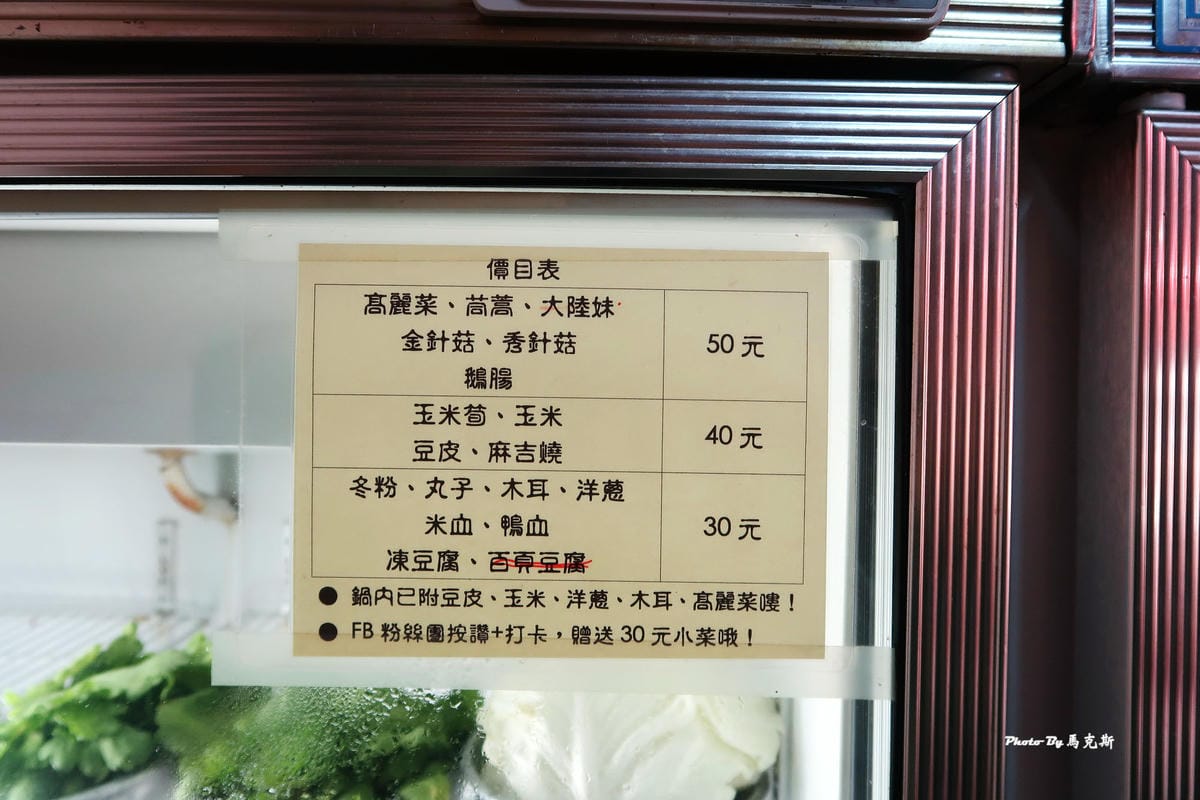 價目表
高麗菜、茼蒿、大陸妹
金針菇、秀針菇
鵝腸
50元
玉米筍、玉米
豆皮、麻吉燒
40元
冬粉、丸子、木耳、洋蔥
米血、鴨血
凍豆腐、百頁豆腐
30元
● 鍋內已附豆皮、玉米、洋蔥、木耳、高麗菜嘍！
● FB粉絲團按讚+打卡，贈送30元小菜哦！
Photo By 馬克斯